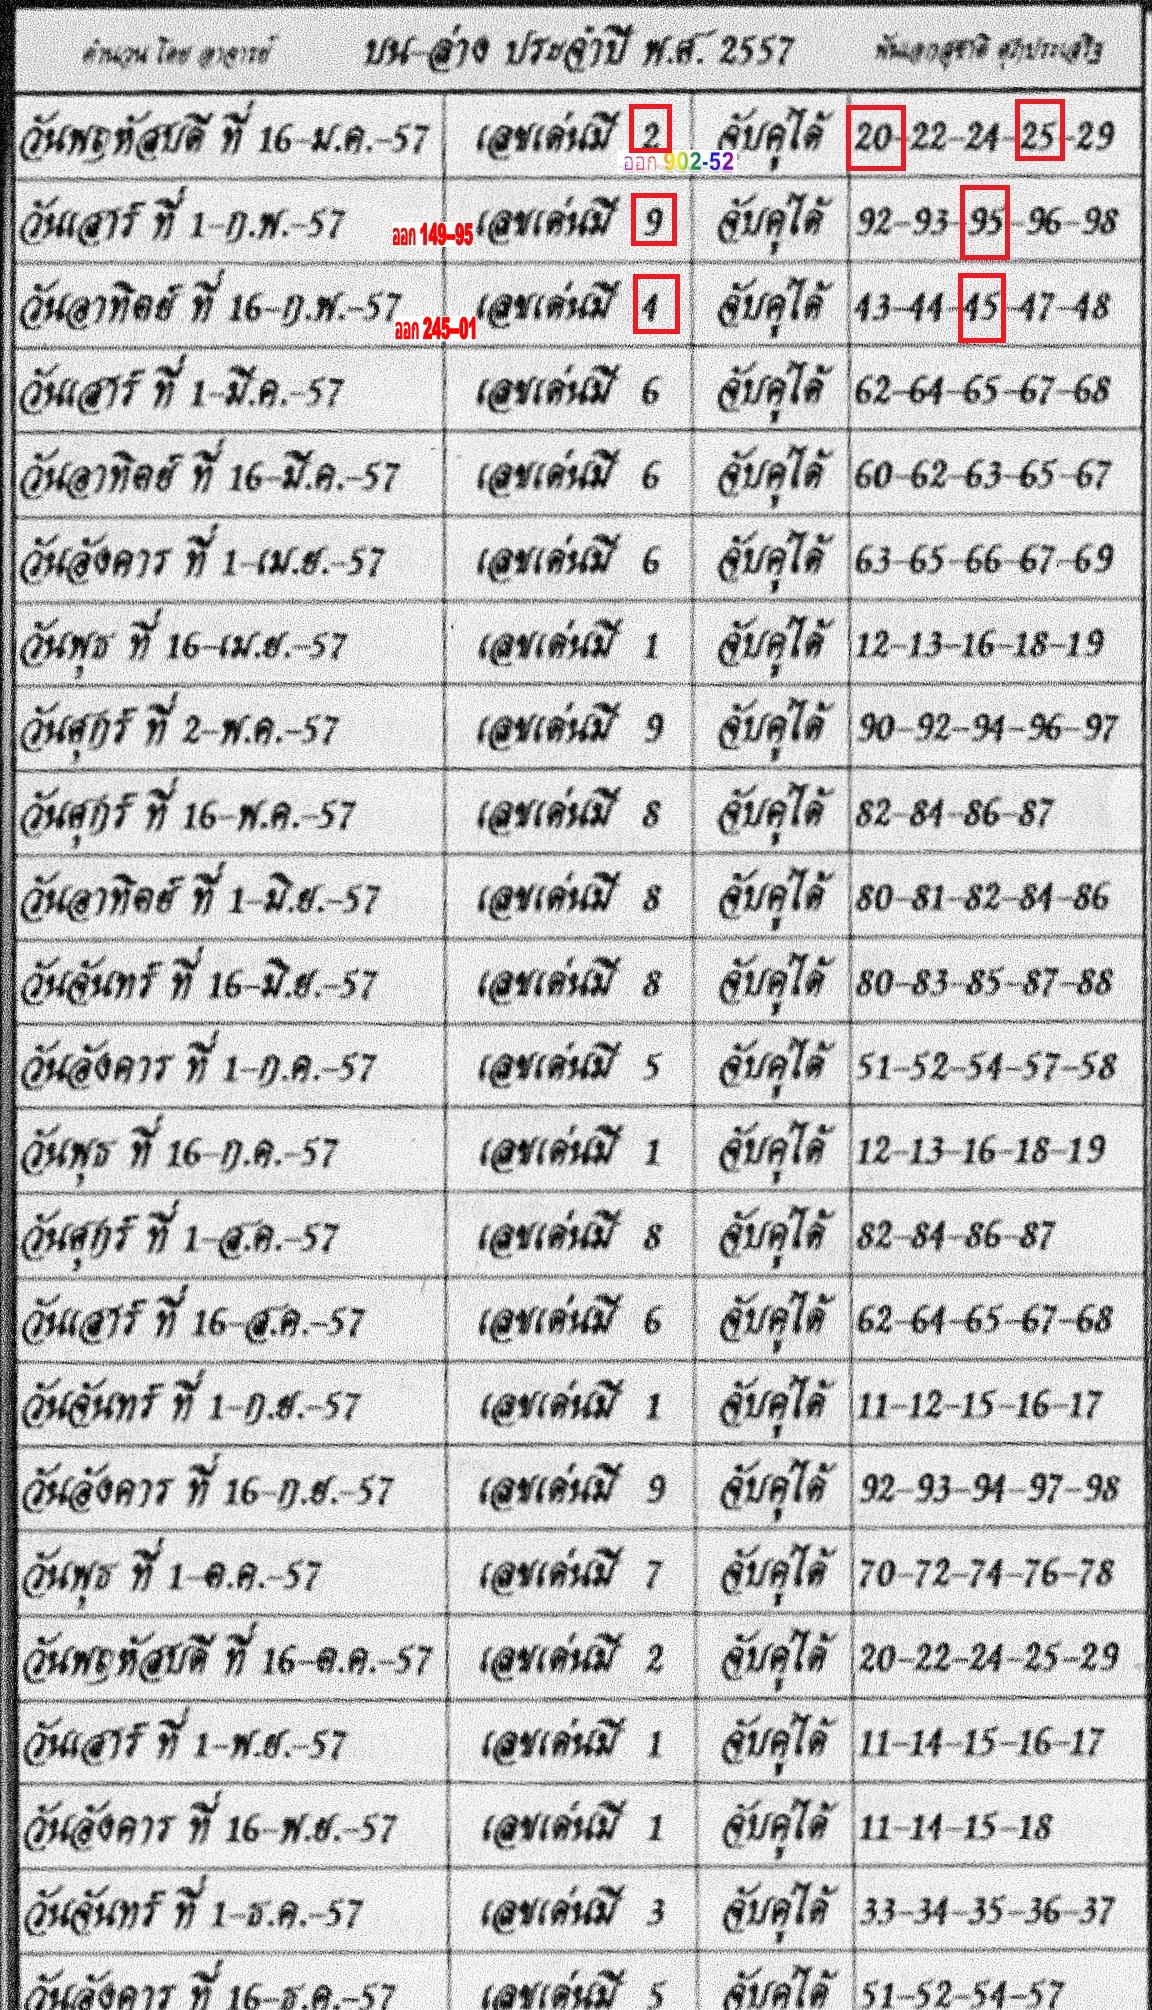 คำนวน โดย อาจารย์ บน-ล่าง ประจำปี พ.ศ. 2557 พันเอกสุชาติ ศุภประเสริฐ
วันพฤหัสบดี ที่ 16-ม.ค.-57 เลขเด่นมี 2 จับคู่ได้ 20-22-24-25-29
ออก 902-52
วันเสาร์ ที่ 1-ก.พ.-57 เลขเด่นมี 9 จับคู่ได้ 92-93-95-96-98
ออก 149-95
วันอาทิตย์ ที่ 16-ก.พ.-57 เลขเด่นมี 4 จับคู่ได้ 43-44-45-47-48
ออก 245-01
วันเสาร์ ที่ 1-มี.ค.-57 เลขเด่นมี 6 จับคู่ได้ 62-64-65-67-68
วันอาทิตย์ ที่ 16-มี.ค.-57 เลขเด่นมี 6 จับคู่ได้ 60-62-63-65-67
วันอังคาร ที่ 1-เม.ย.-57 เลขเด่นมี 6 จับคู่ได้ 63-65-66-67-69
วันพุธ ที่ 16-เม.ย.-57 เลขเด่นมี 1 จับคู่ได้ 12-13-16-18-19
วันศุกร์ ที่ 2-พ.ค.-57 เลขเด่นมี 9 จับคู่ได้ 90-92-94-96-97
วันศุกร์ ที่ 16-พ.ค.-57 เลขเด่นมี 8 จับคู่ได้ 82-84-86-87
วันอาทิตย์ ที่ 1-มิ.ย.-57 เลขเด่นมี 8 จับคู่ได้ 80-81-82-84-86
วันจันทร์ ที่ 16-มิ.ย.-57 เลขเด่นมี 8 จับคู่ได้ 80-83-85-87-88
วันอังคาร ที่ 1-ก.ค.-57 เลขเด่นมี 5 จับคู่ได้ 51-52-54-57-58
วันพุธ ที่ 16-ก.ค.-57 เลขเด่นมี 1 จับคู่ได้ 12-13-16-18-19
วันศุกร์ ที่ 1-ส.ค.-57 เลขเด่นมี 8 จับคู่ได้ 82-84-86-87
วันเสาร์ ที่ 16-ส.ค.-57 เลขเด่นมี 6 จับคู่ได้ 62-64-65-67-68
วันจันทร์ ที่ 1-ก.ย.-57 เลขเด่นมี 1 จับคู่ได้ 11-12-15-16-17
วันอังคาร ที่ 16-ก.ย.-57 เลขเด่นมี 9 จับคู่ได้ 92-93-94-97-98
วันพุธ ที่ 1-ต.ค.-57 เลขเด่นมี 7 จับคู่ได้ 70-72-74-76-78
วันพฤหัสบดี ที่ 16-ต.ค.-57 เลขเด่นมี 2 จับคู่ได้ 20-22-24-25-29
วันเสาร์ ที่ 1-พ.ย.-57 เลขเด่นมี 1 จับคู่ได้ 11-14-15-16-17
วันอังคาร ที่ 16-พ.ย.-57 เลขเด่นมี 1 จับคู่ได้ 11-14-15-18
วันจันทร์ ที่ 1-ธ.ค.-57 เลขเด่นมี 3 จับคู่ได้ 33-34-35-36-37
วันอังคาร ที่ 16-ธ.ค.-57 เลขเด่นมี 5 จับคู่ได้ 51-52-54-57